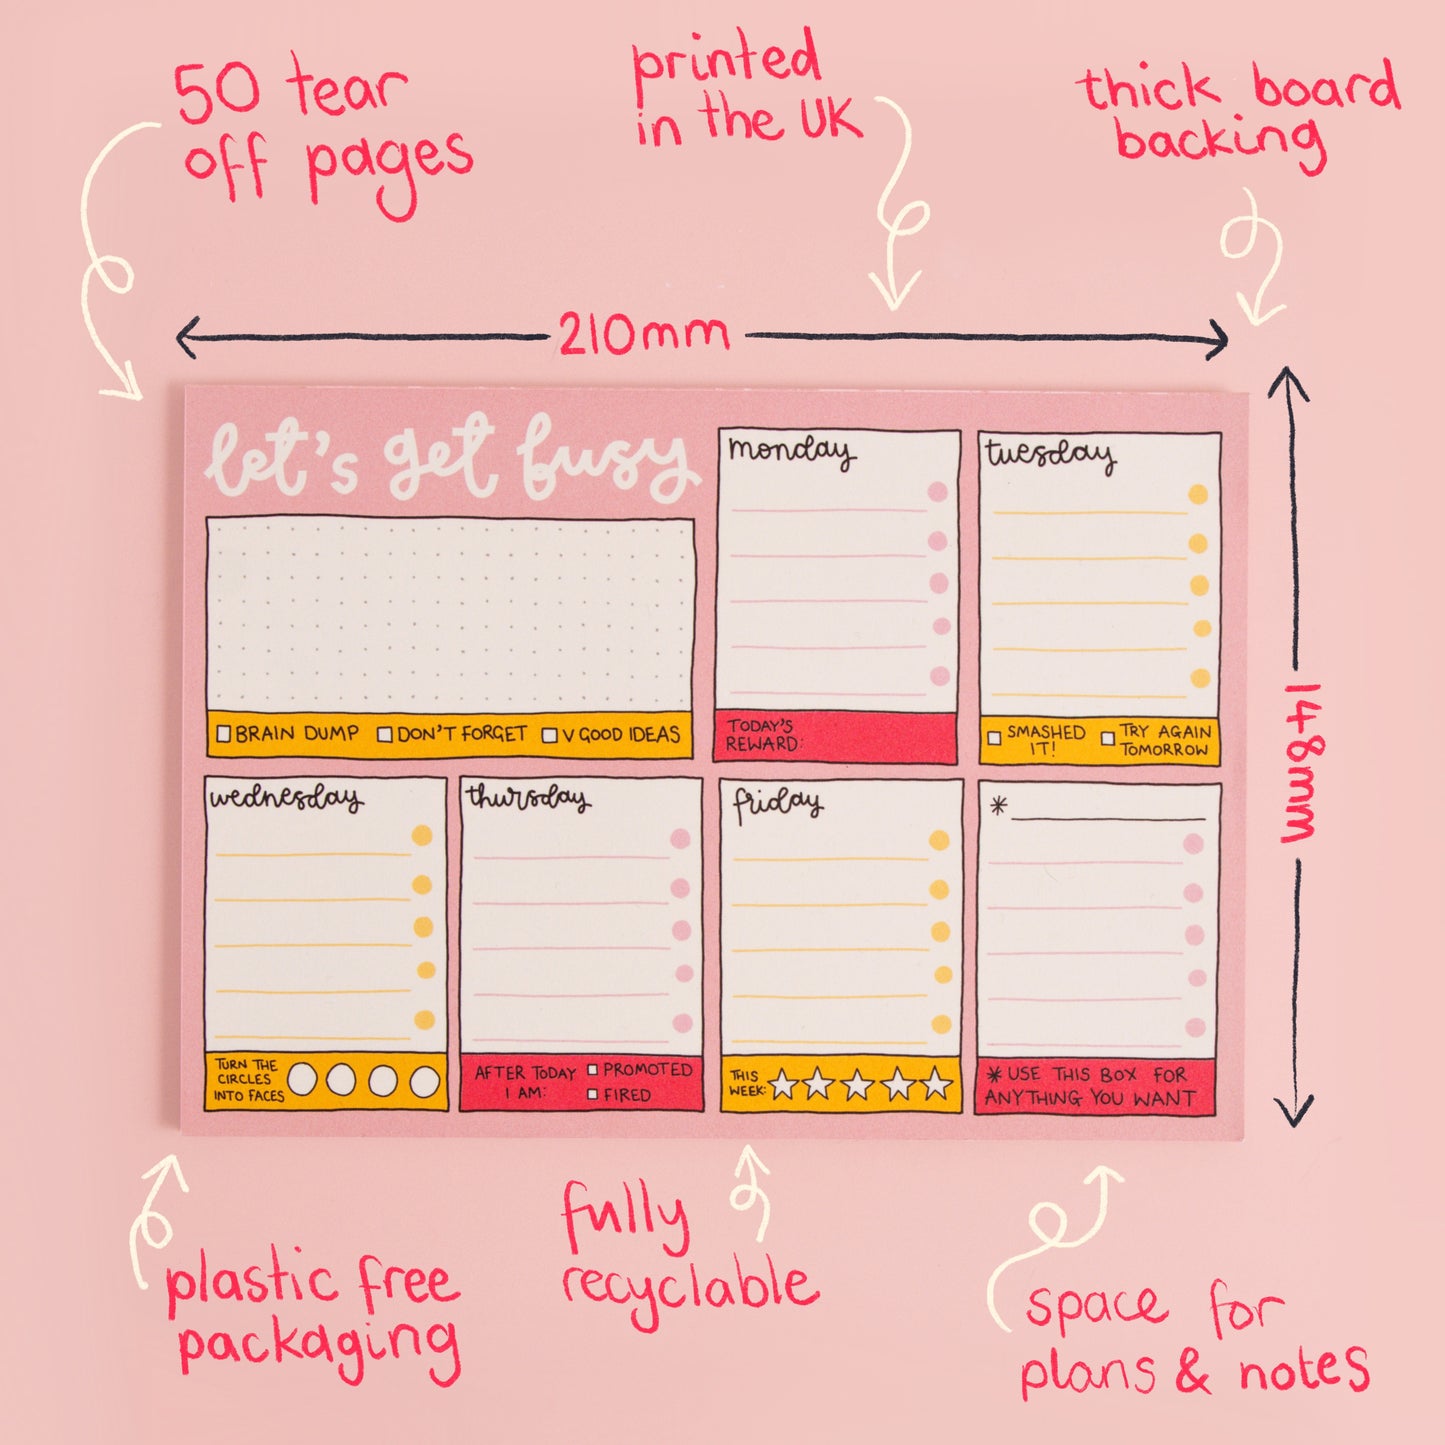 50 tear
off pages
printed
in the UK
thick board
backing
210mm
148mm
let's get busy
BRAIN DUMP DON'T FORGET V GOOD IDEAS
monday
TODAY'S
REWARD:
tuesday
SMASHED
IT!
TRY AGAIN
TOMORROW
wednesday
TURN THE
CIRCLES
INTO FACES
thursday
AFTER TODAY
I AM:
PROMOTED
FIRED
friday
THIS
WEEK:
*
* USE THIS BOX FOR
ANYTHING YOU WANT
plastic free
packaging
fully
recyclable
space for
plans & notes